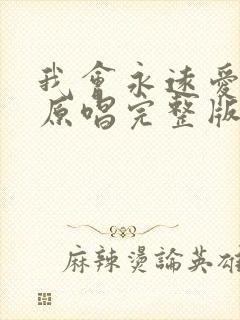 我會永遠愛
原唱完整版
麻辣燙論英雄